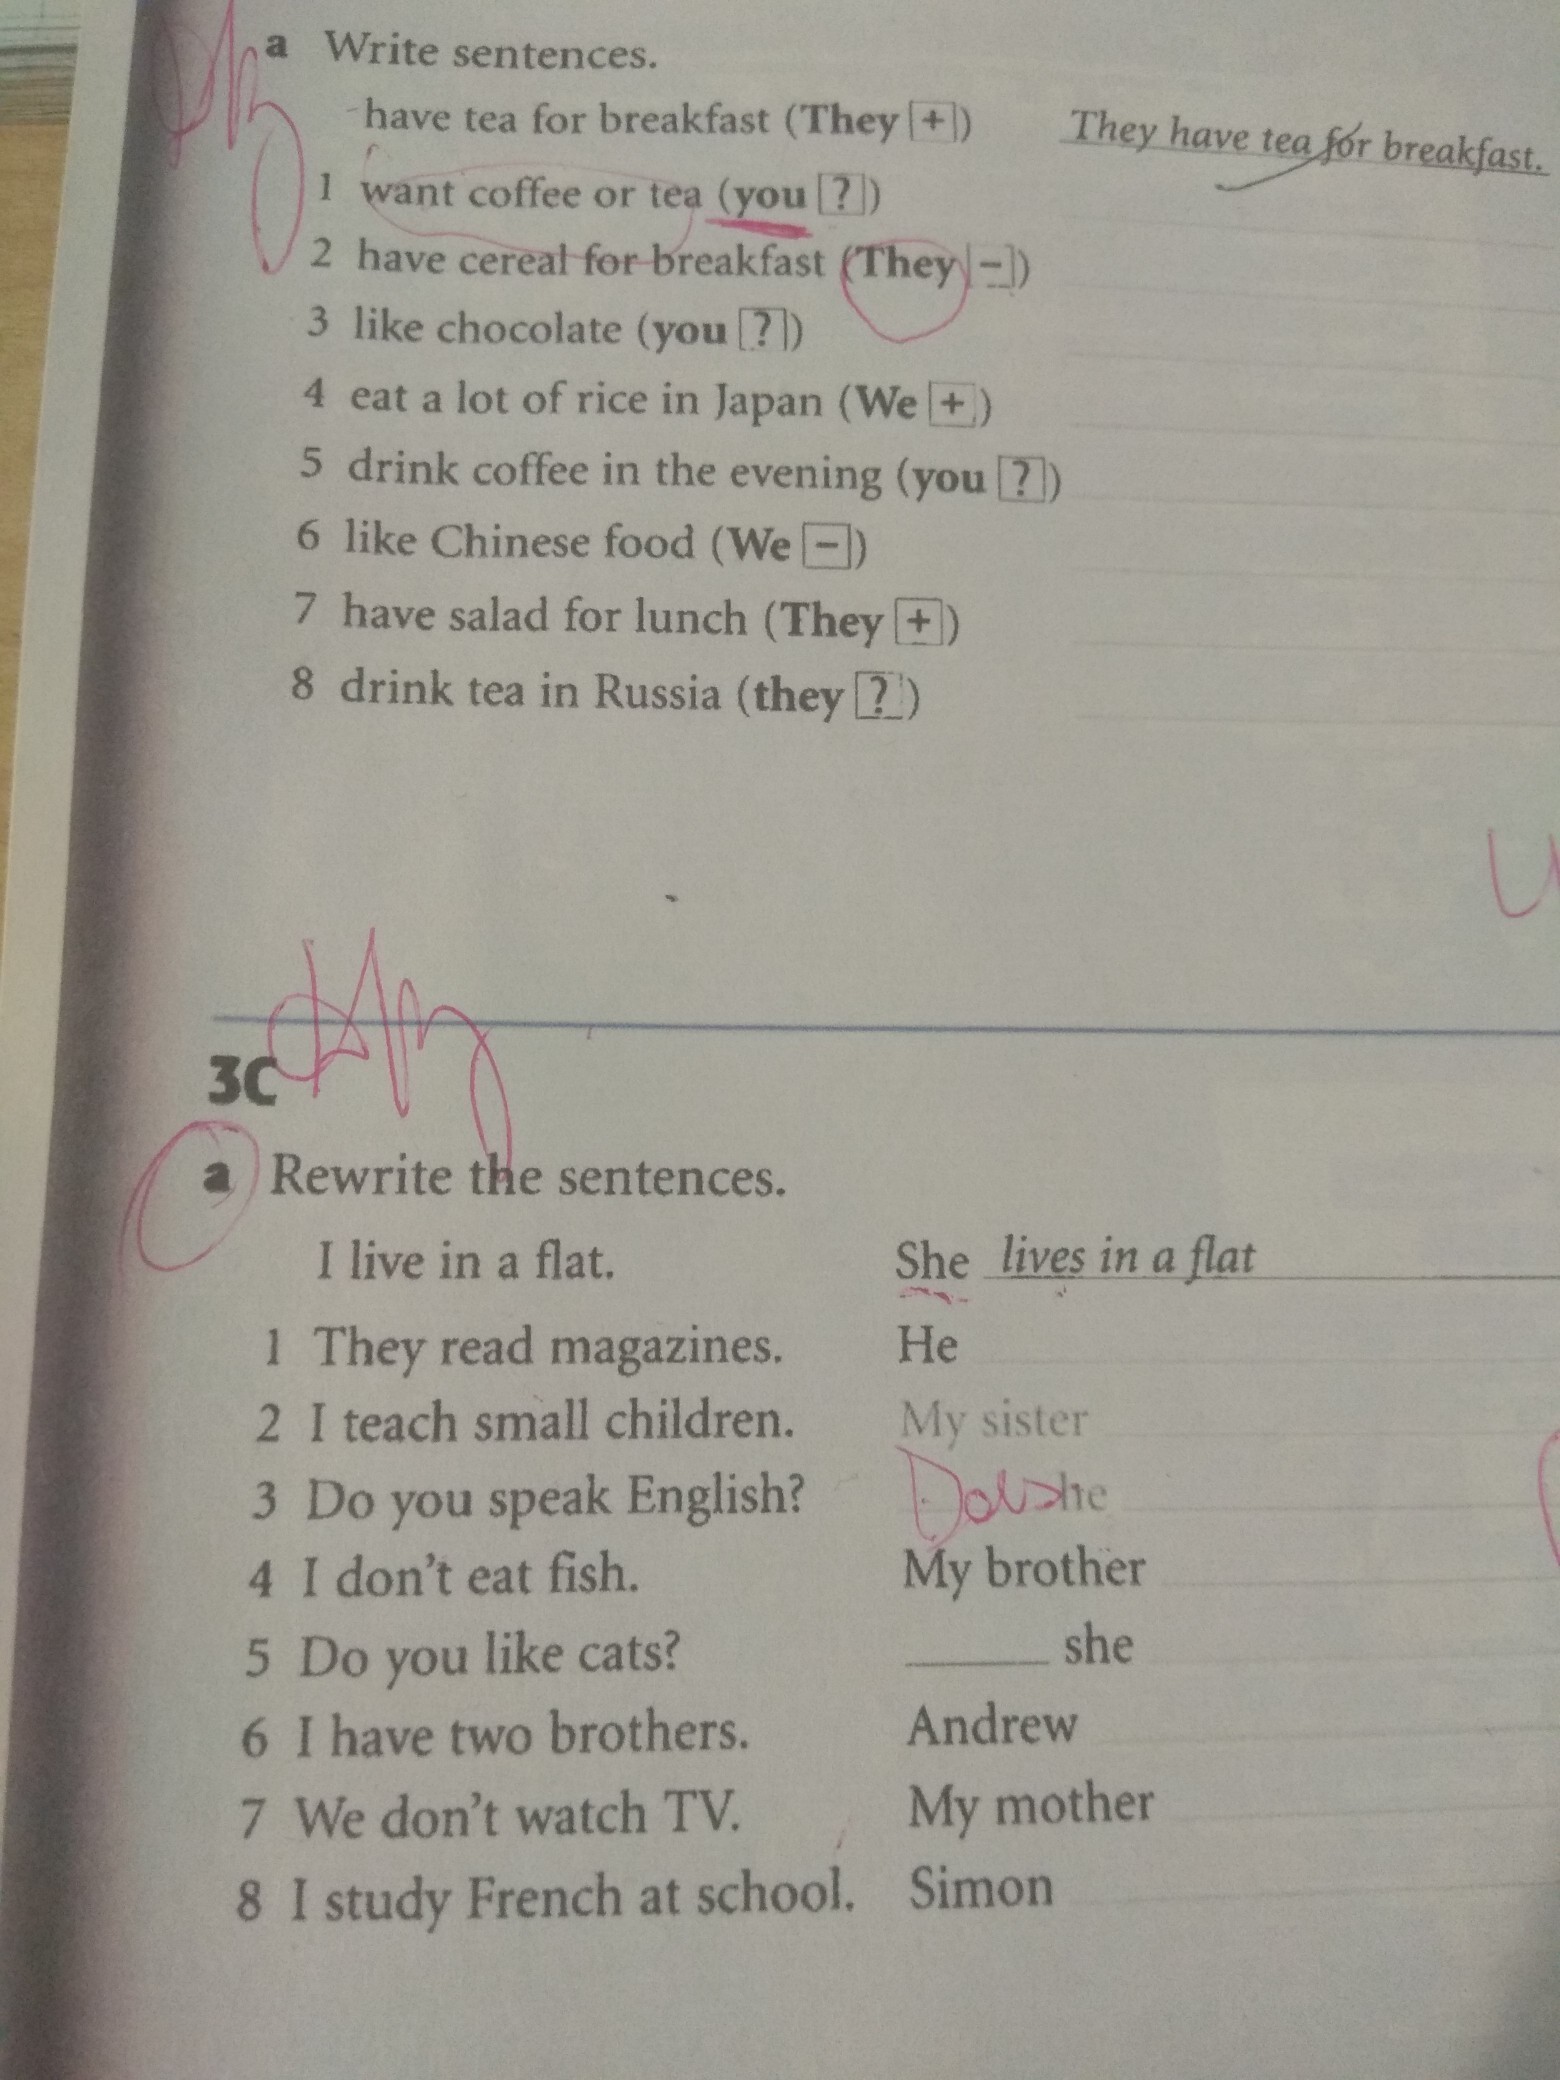 a Write sentences.
have tea for breakfast (They [+]) They have tea for breakfast.
1 want coffee or tea (you [?])
2 have cereal for breakfast (They [−])
3 like chocolate (you [?])
4 eat a lot of rice in Japan (We [+])
5 drink coffee in the evening (you [?])
6 like Chinese food (We [−])
7 have salad for lunch (They [+])
8 drink tea in Russia (they [?])
3C
a Rewrite the sentences.
I live in a flat. She lives in a flat
1 They read magazines. He
2 I teach small children. My sister
3 Do you speak English? she
4 I don't eat fish. My brother
5 Do you like cats? ______ she
6 I have two brothers. Andrew
7 We don't watch TV. My mother
8 I study French at school. Simon